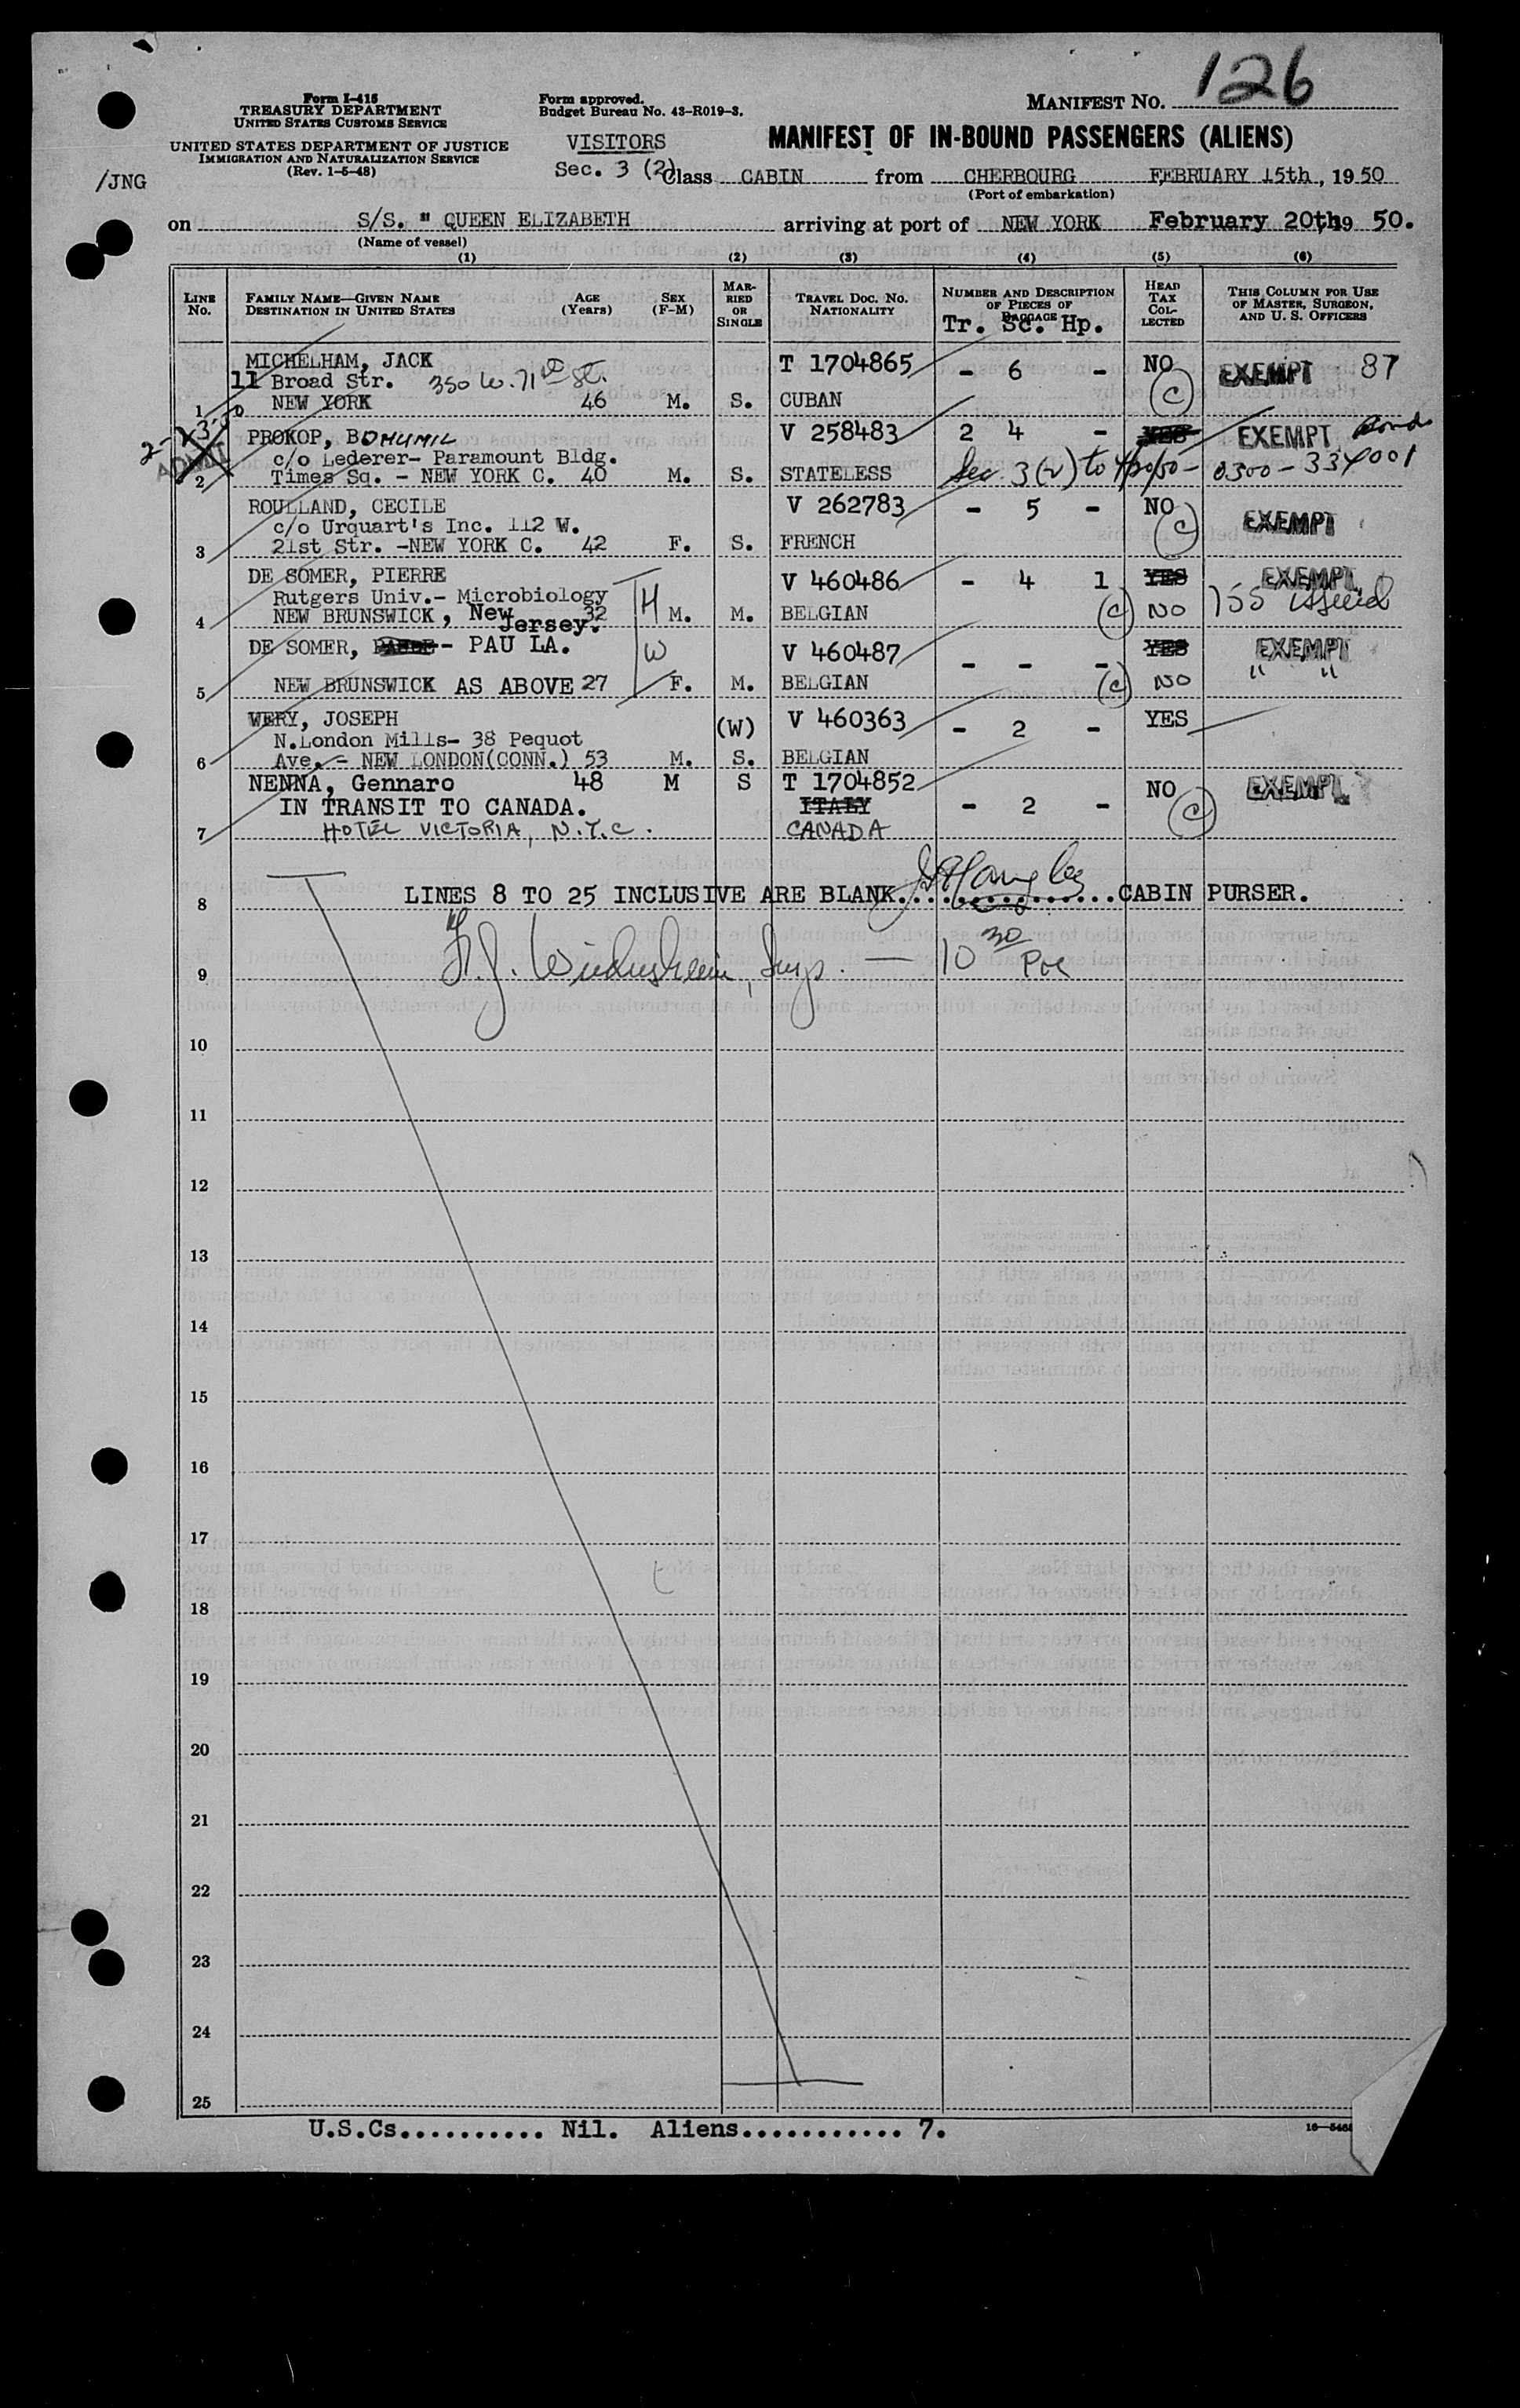 126
Form I-415
TREASURY DEPARTMENT
UNITED STATES CUSTOMS SERVICE
UNITED STATES DEPARTMENT OF JUSTICE
IMMIGRATION AND NATURALIZATION SERVICE
(Rev. 1-5-48)
/JNG
Form approved.
Budget Bureau No. 43-R019-3.
VISITORS
Sec. 3 (2)
MANIFEST NO.
MANIFEST OF IN-BOUND PASSENGERS (ALIENS)
Class CABIN from CHERBOURG FEBRUARY 15th, 1950
(Port of embarkation)
on S/S. " QUEEN ELIZABETH arriving at port of NEW YORK February 20th, 19 50.
(Name of vessel)
(1) (2) (3) (4) (5) (6)
LINE NO.
FAMILY NAME—GIVEN NAME
DESTINATION IN UNITED STATES
AGE (Years)
SEX (F-M)
MARRIED OR SINGLE
TRAVEL DOC. NO. NATIONALITY
NUMBER AND DESCRIPTION OF PIECES OF BAGGAGE
Tr. Sc. Hp.
HEAD TAX COLLECTED
THIS COLUMN FOR USE OF MASTER, SURGEON, AND U. S. OFFICERS
MICHELHAM, JACK T 1704865 - 6 - NO EXEMPT 87
11 Broad Str. 350 W. 71 St. (C)
1 NEW YORK 46 M. S. CUBAN
2-23-50
ADMIT
PROKOP, BOHUMIL V 258483 2 4 - YES EXEMPT Bond
c/o Lederer- Paramount Bldg.
2 Times Sq. - NEW YORK C. 40 M. S. STATELESS Sec. 3(2) to 4/20/50 - 0300-334001
ROULLAND, CECILE V 262783 - 5 - NO EXEMPT
c/o Urquart's Inc. 112 W. (C)
3 21st Str. -NEW YORK C. 42 F. S. FRENCH
DE SOMER, PIERRE V 460486 - 4 1 YES EXEMPT
Rutgers Univ.- Microbiology H 155 issued
4 NEW BRUNSWICK, New Jersey. 32 M. M. BELGIAN (C) NO
DE SOMER, - PAU LA. W V 460487 - - - YES EXEMPT
5 NEW BRUNSWICK AS ABOVE 27 F. M. BELGIAN (C) NO " "
WERY, JOSEPH (W) V 460363 - 2 - YES
N.London Mills- 38 Pequot
6 Ave.- NEW LONDON(CONN.) 53 M. S. BELGIAN
NENNA, Gennaro 48 M S T 1704852 NO EXEMPT
IN TRANSIT TO CANADA. ITALY - 2 - (C)
7 HOTEL VICTORIA, N.Y.C. CANADA
8 LINES 8 TO 25 INCLUSIVE ARE BLANK................CABIN PURSER.
9 Insp. — 10 30
10
11
12
13
14
15
16
17
18
19
20
21
22
23
24
25
U.S.Cs.......... Nil. Aliens........... 7.